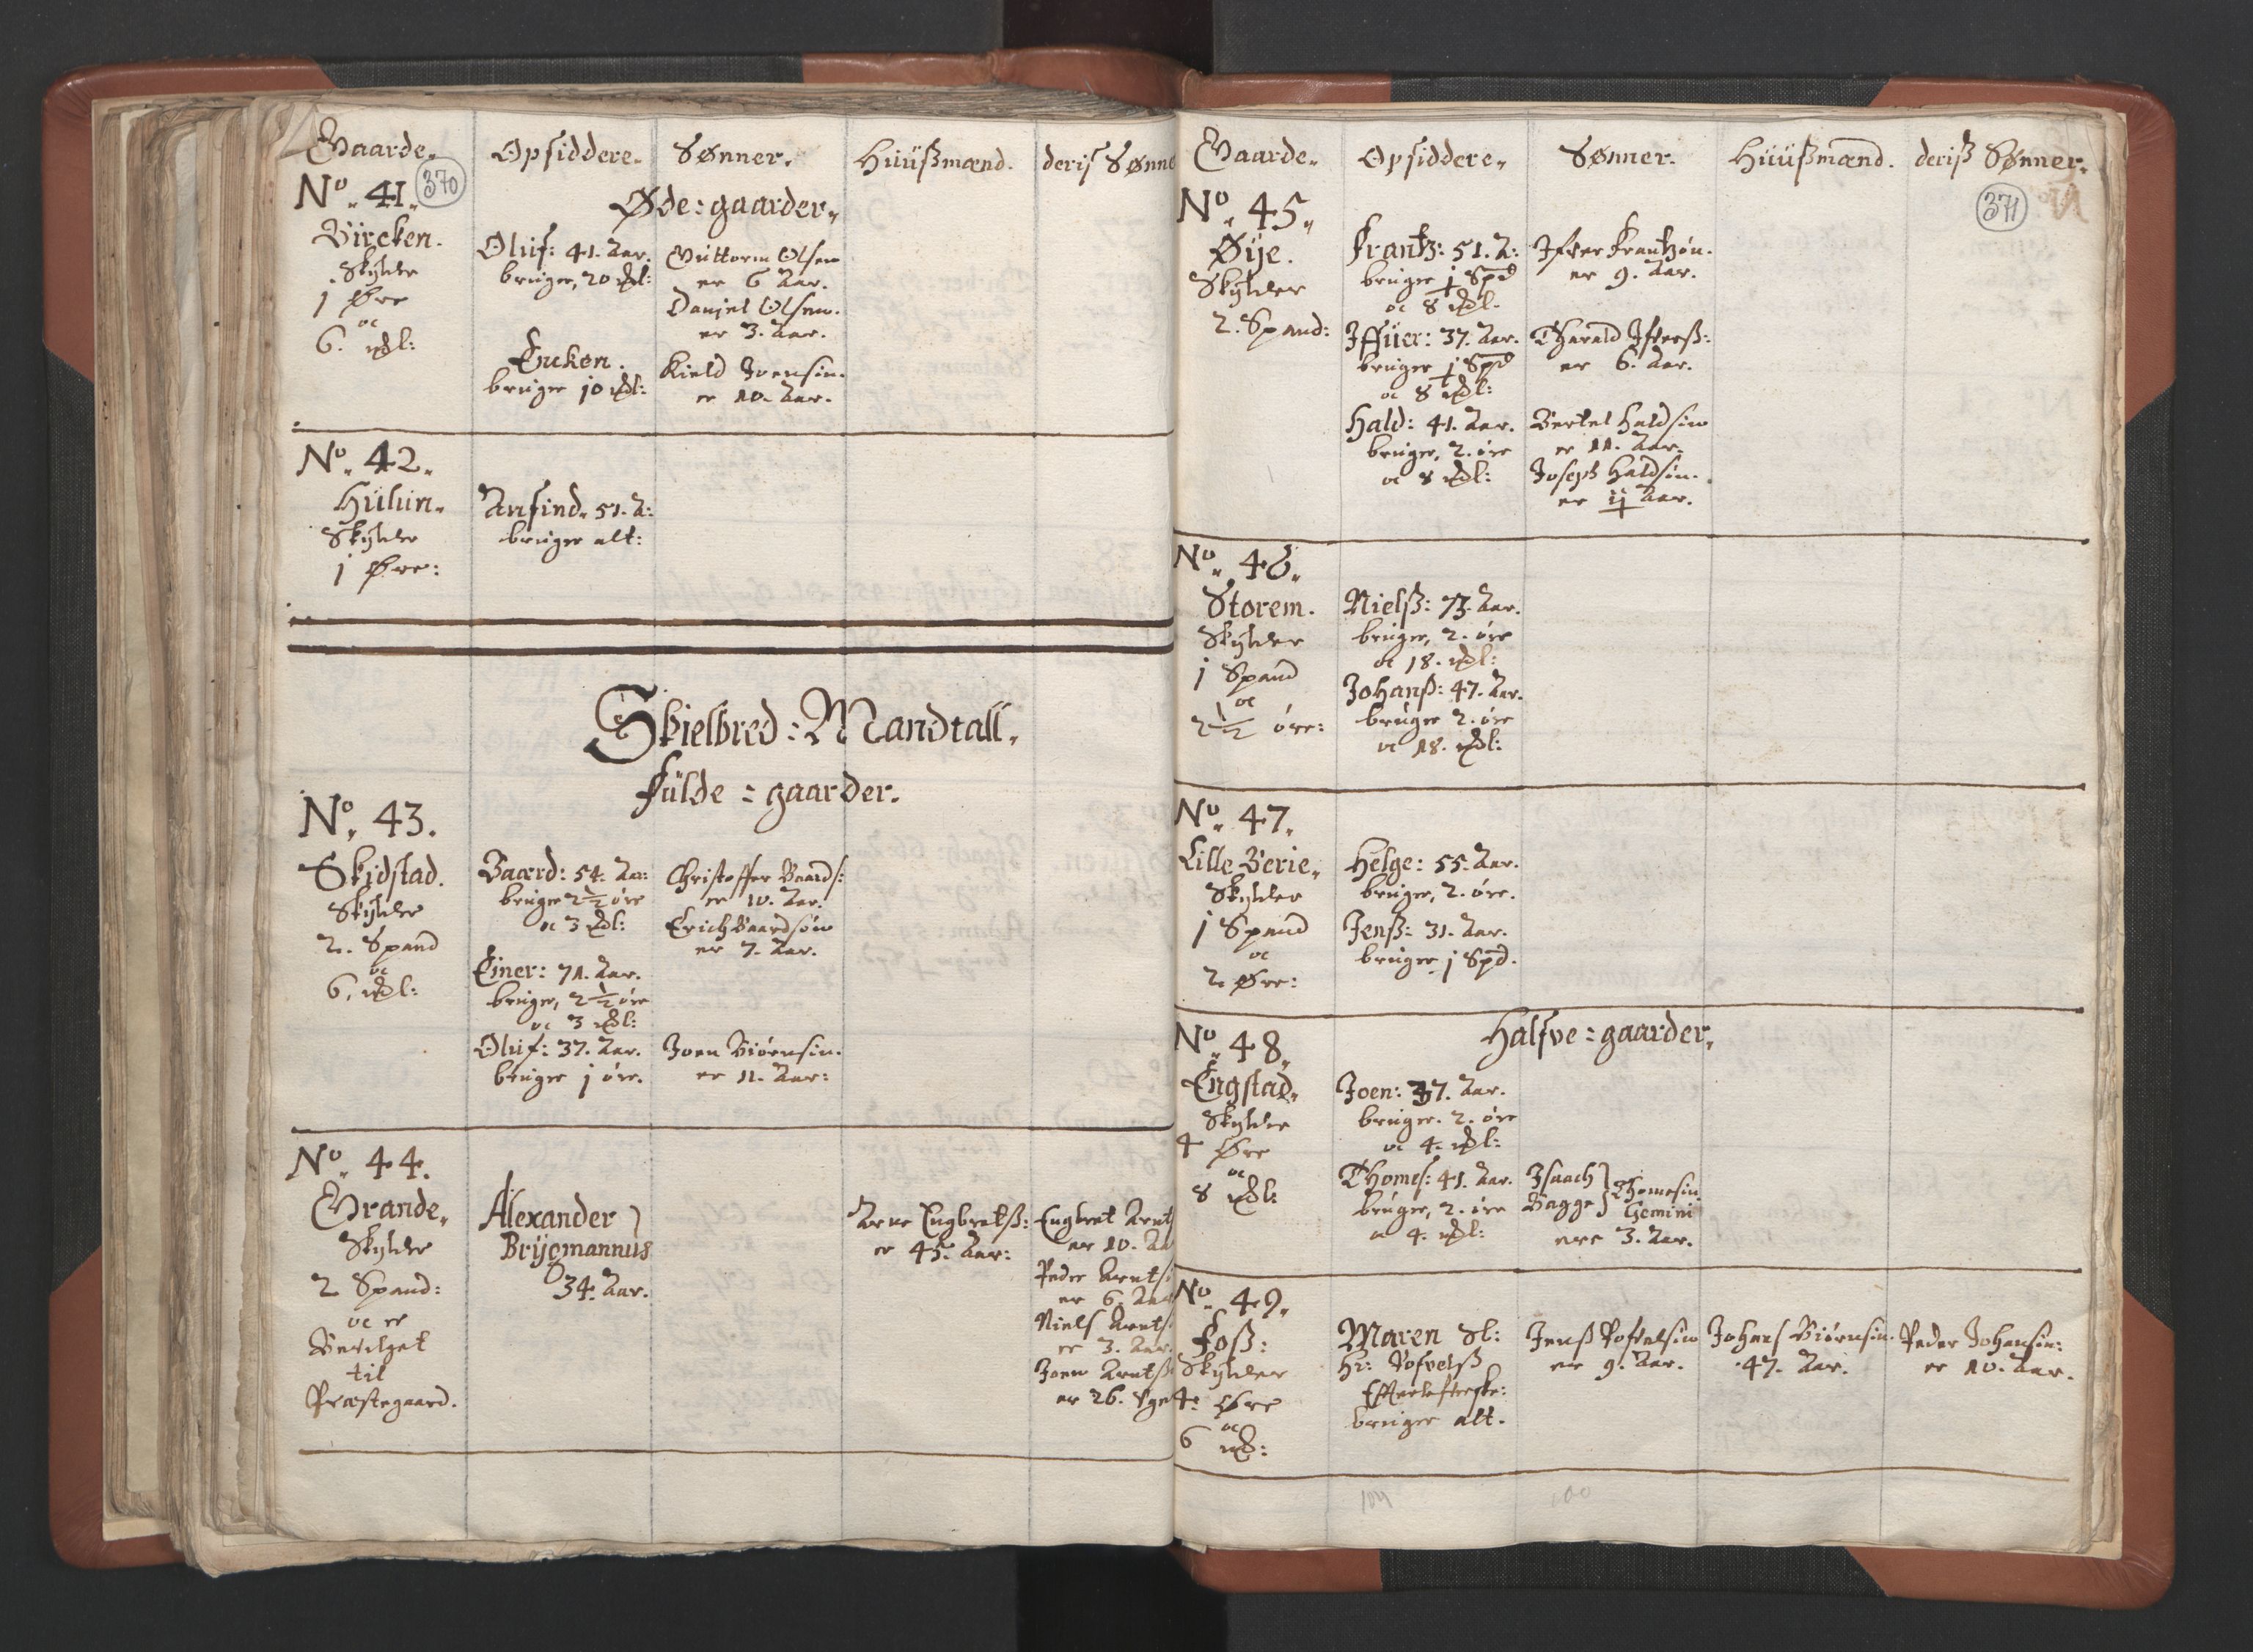 Gaarde. Opsiddere. Sønner. Hüüßmænd. deriß Sønne
No. 41. 370
Øde=gaarder.
Bircken.
Skylder
j Øre
oc
6. mkl:
Oluf: 41. Aar.
bruger, 20 mkl:
Encken.
bruger 10 mkl:
Guttorm Olsen
er 6 Aar.
Daniel Olsen.
er 3. Aar.
Kield Joensøn.
er 10. Aar.
No. 42.
Hülün.
Skylder
j Øre:
Anfind. 51. A:
bruger alt:
Skielbred: Mandtall.
Fülde=gaarder.
No. 43.
Skidstad.
Skylder
2. Spand
oc
6. mkl:
Baard: 54. Aar:
bruger 2½ øre
oc 3 mkl:
Einer: 71. Aar.
bruger, 2½ øre
oc 3 mkl:
Oluf: 37. Aar.
bruger j øre.
Christoffer Baards:
er 10. Aar.
Erich Baardsøn
er 7. Aar.
Joen Biørnsøn.
er 11. Aar:
No. 44.
Grande.
Skylder
2 Spand:
oc er
Bevilget
til
Præstegaard.
Alexander
Brygmannus
34. Aar.
Arne Engbretß:
er 45. Aar:
Engbret Arnt
er 10. Aa
Peder Arnts:
er 6. Aar
Niels Arnts:
er 3. Aar.
Joen Arntß
er 26. Uger
Gaarde. Opsiddere. Sønner. Hüüßmænd. deriß Sønner.
371
No. 45.
Øije.
Skylder
2. Spand:
Frantz: 51. A:
bruger j Spd
oc 8 mkl.
Iffüer: 37. Aar.
bruger j Spd
oc 8 mkl:
Hald: 41. Aar.
bruger, 2. øre
oc 8 mkl:
Ifver Frantzøn.
er 9. Aar.
Harald Ifverß:
er 6. Aar.
Bertel Haldsøn
er 11. Aar.
Joseph Haldsøn.
er ij Aar.
No. 46.
Storem.
Skylder
j Spand
oc
2½ øre:
Nielß: 73. Aar.
bruger, 2. øre
oc 18. mkl:
Johanß: 47. Aar.
bruger 2. øre
oc 18. mkl:
No. 47.
Lille Verie.
Skylder
j Spand
oc
2. Øre:
Helge: 55. Aar.
bruger, 2. øre.
Jenß: 31. Aar.
bruger j Spd.
Halfve=gaarder.
No. 48.
Engstad.
Skylder
4 Øre
oc
8 mkl:
Joen: 37. Aar.
bruger. 2. øre
oc 4. mkl:
Thomes: 41. Aar.
bruger, 2. øre
oc 4. mkl:
Isaach Thomesøn.
Bagge Gemini
ere 3. Aar.
No. 49.
Foß:
Skylder
4: Øre
oc
6 mk:
Maren Sl:
Hr: Pofvelß
Effterlefverske:
bruger alt.
Jenß Pofvelsøn
er 9. Aar.
Johans Biørnsøn.
47. Aar.
Peder Johansøn:
er 10. Aar.
104 100